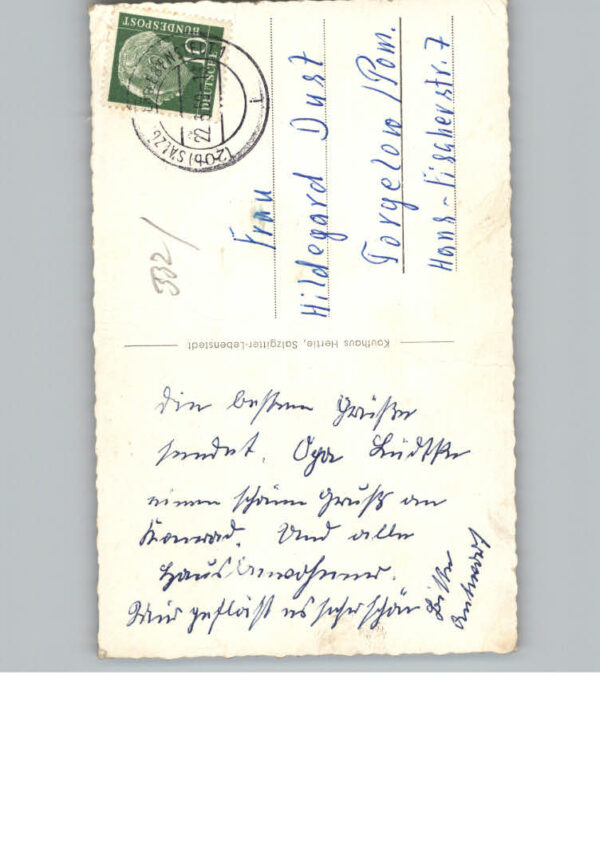 Die besten Grüße
sendet. Opa Lüdtke
einen schönen Gruß an
Konrad. Und alle
Hausbewohner.
Mir gefläst es sehr schön
Bitte
Antwort
Kaufhaus Hertie, Salzgitter-Lebenstedt
Frau
Hildegard Dust
Torgelow/Pom.
Hans-Fischerstr. 7
332/
DEUTSCHE
BUNDESPOST
10
(20b) SALZG
22